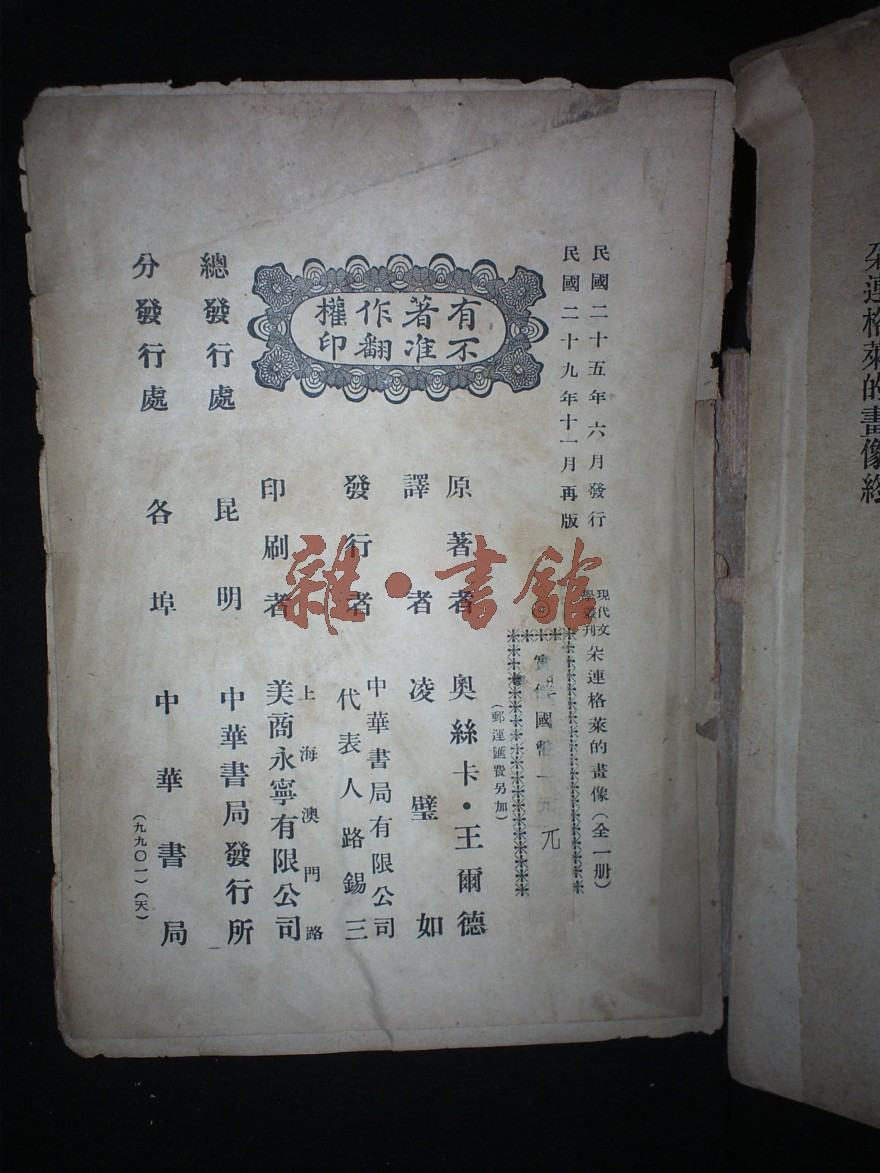 朶連格萊的畫像終
民國二十五年六月發行
民國二十九年十一月再版
現代文
學叢刊
朶連格萊的畫像(全一册)
實價國幣一元
(郵運匯費另加)
有著作權
不准翻印
原著者 奧絲卡·王爾德
譯者 凌璧如
發行者 中華書局有限公司
代表人路錫三
印刷者 上海澳門路
美商永寧有限公司
總發行處 昆明 中華書局發行所
分發行處 各埠 中華書局
(九九〇一)(天)
雜·書館